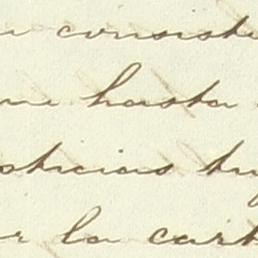 consiste
me hasta
sticias tu
r la cart